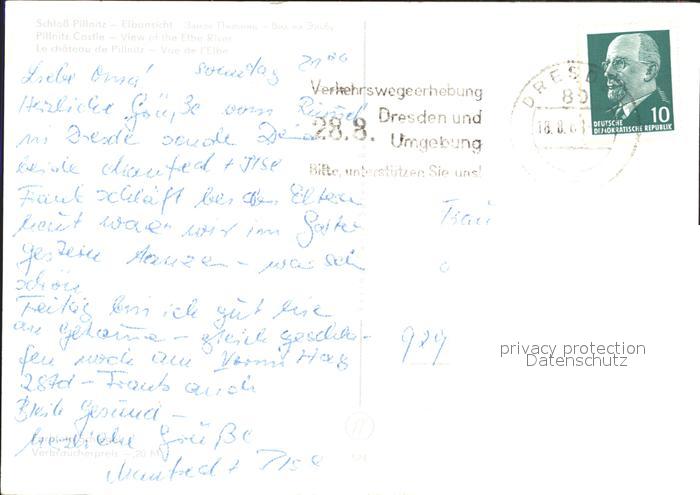 Schloß Pillnitz – Elbansicht
Pillnitz Castle – View of the Elbe River
Le château de Pillnitz – Vue de l'Elbe
Liebe Oma! Sonntag 21.00
Herzliche Grüße vom
in Dresde
beide Manfred + Ilse
Frank schläft bei den Eltern
heut waren wir im Garten
gestern tanzen – war sehr
schön
Freitag bin ich gut hier
an gekomme – gleich geschla-
fen noch am Vormittag
Frank auch
Bleib gesund –
herzliche Grüße
Manfred + Ilse
Verbraucherpreis –,20 M
Verkehrswegeerhebung
28.8. Dresden und
Umgebung
Bitte, unterstützen Sie uns!
DRESD
80
18.8.
10
DEUTSCHE
DEMOKRATISCHE REPUBLIK
Frau
privacy protection
Datenschutz